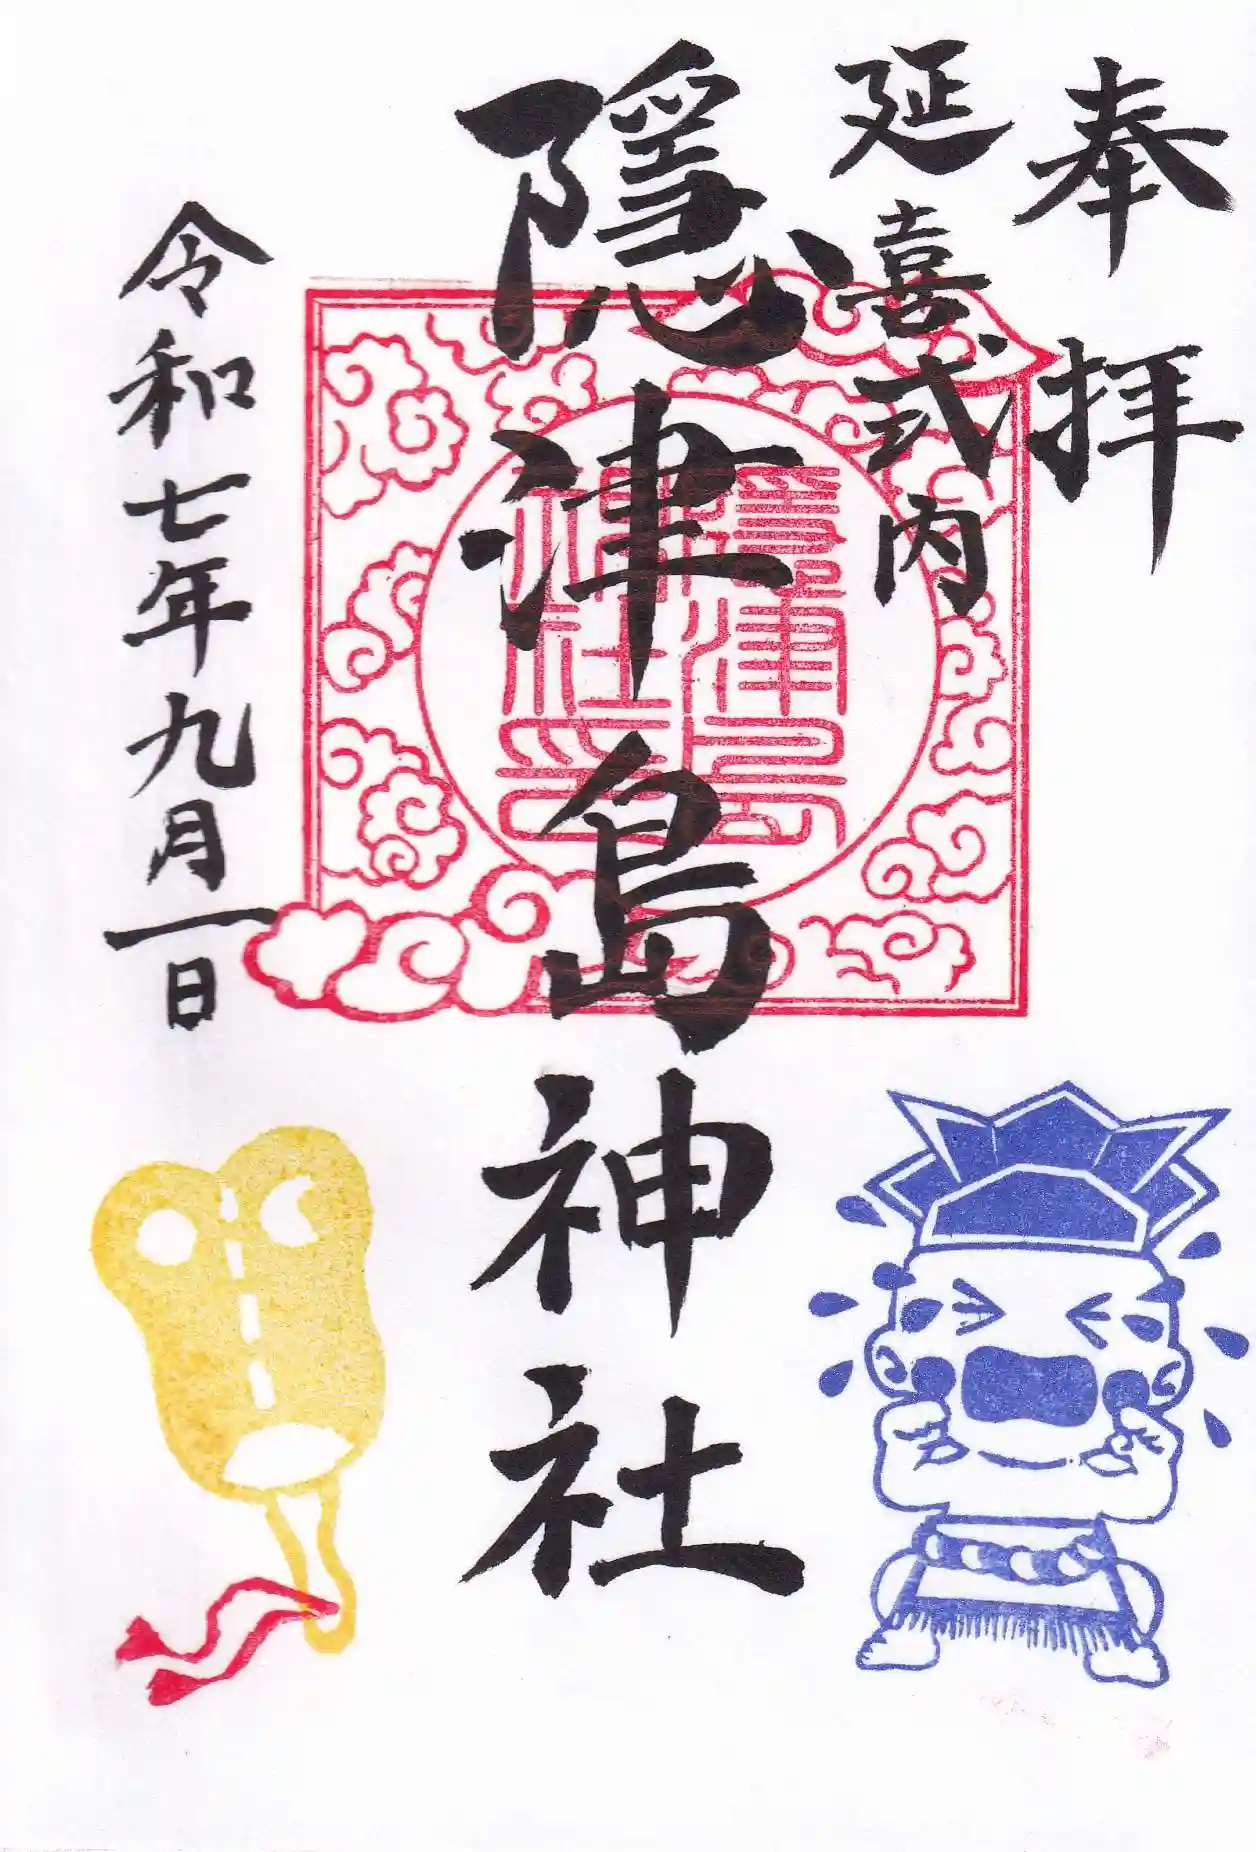 奉拝
延喜式内
隱津島神社
隱津島神社印
令和七年九月一日